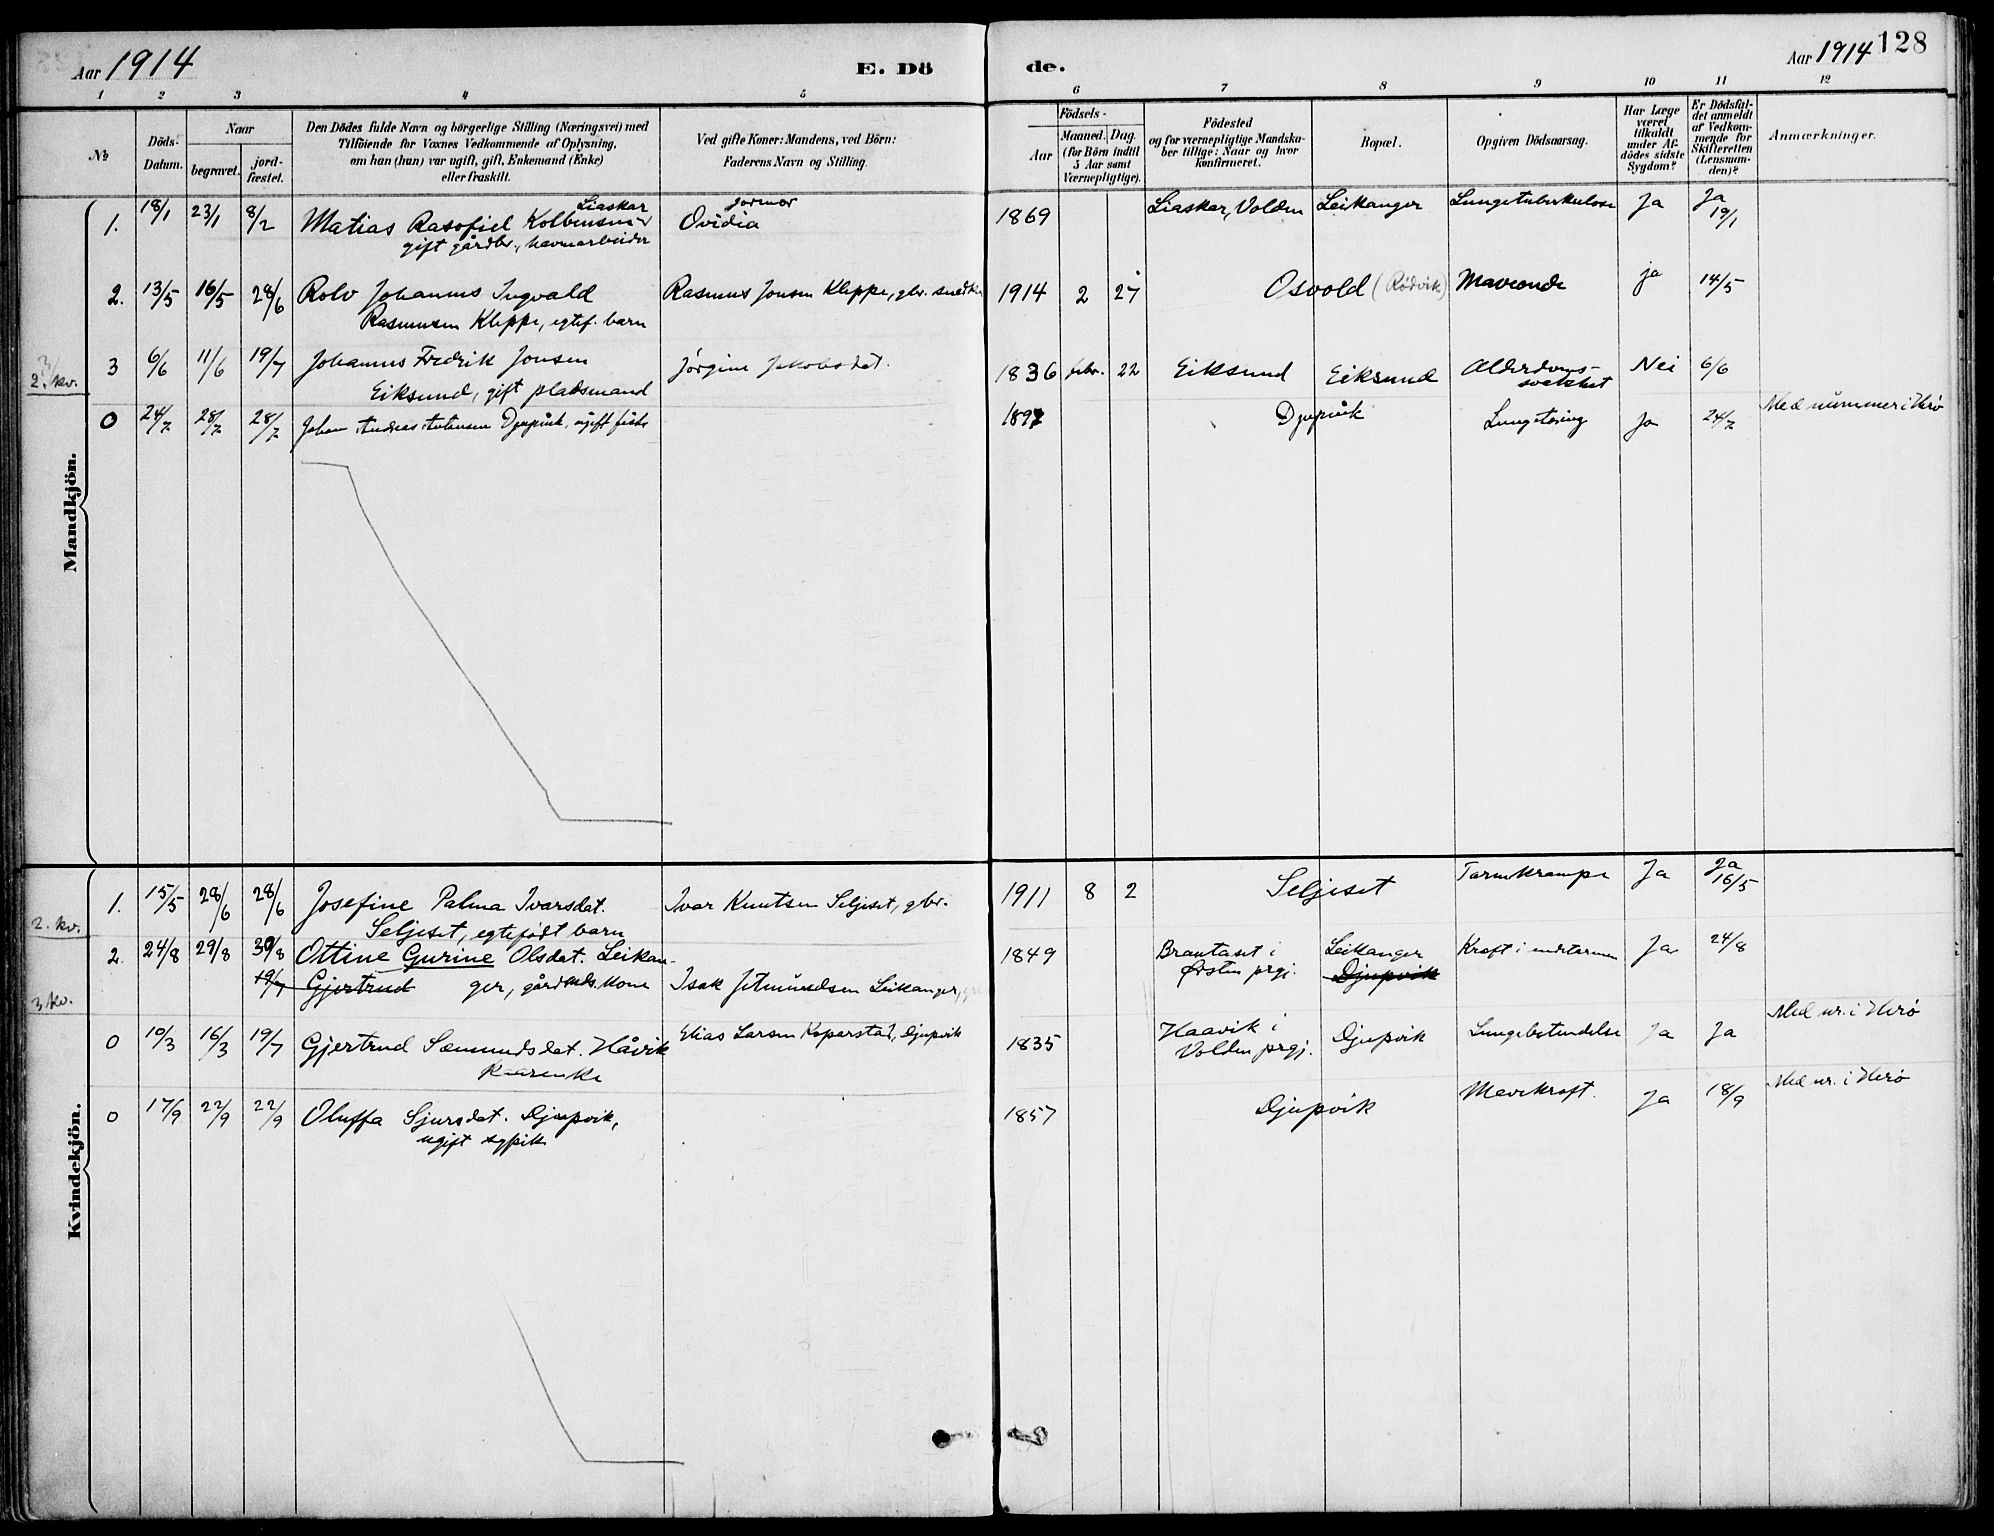 Aar 1914
E. Dö
de.
Aar 1914 128
1 2 3 4 5 6 7 8 9 10 11 12
No
Döds-Datum.
Naar
begravet.
jord-fæstet.
Den Dödes fulde Navn og borgerlige Stilling (Næringsvei) med
Tilföiende for Voxnes Vedkommende af Oplysning,
om han (hun) var ugift, gift, Enkemand (Enke)
eller fraskilt.
Ved gifte Koner: Mandens, ved Börn:
Faderens Navn og Stilling.
Födsels-
Aar
Maaned. Dag.
(for Börn indtil
5 Aar samt
Værnepligtige).
Födested
og for værnepligtige Mandska-
ber tillige: Naar og hvor
konfirmeret.
Bopæl.
Opgiven Dödsaarsag.
Har Læge
været
tilkaldt
under Af-
dödes sidste
Sygdom?
Er Dödsfal-
det anmeldt
af Vedkom-
mende for
Skifteretten
(Lensman-
den)?
Anmærkninger.
Mandkjön.
Liaskar
1. 18/1 23/1 8/2 Matias Rasofiel Kolbensen Ovidia 1869 Liaskar, Volden Leikanger Lungetuberkulose Ja Ja 19/1
gift gårdbr., havnearbeider
2. 13/5 16/5 28/6 Rolv Johannes Ingvald Rasmus Jonsen Kleppe, gbr. snedker 1914 2 27 Osvold (Rødvik) Maveonde ja 14/5
Rasmusen Kleppe, egtef. barn
2. kv.
3 6/6 11/6 19/7 Johannes Fredrik Jonsen Jørgine Jakobsdat. 1836 febr. 22 Eiksund Eiksund Alderdoms- Nei 6/6
Eiksund, gift pladsmand svakhet
0 24/7 28/7 28/7 Johan Andreas Antonsen Djupvik, ugift fisker 1897 Djupvik Lungetæring Ja 24/7 Med nummer i Herø
Kvindekjön.
1. 15/5 28/6 28/6 Josefine Palma Ivarsdat. Ivar Knutsen Seljeset, gbr. 1911 8 2 Seljeset Tarmkrampe Ja Ja 16/5
2. kv.
Seljeset, egtefødt barn
2. 24/8 29/8 30/8 Ottine Gurine Olsdat. Leikan- 1849 Brautaset i Leikanger Kræft i endetarmen Ja 24/8
3 kv.
19/7 Gjertrud ger, gårdmds. kone Isak Jetmundsen Leikanger, Ørsten prgj. Djupvik
0 10/3 16/3 19/7 Gjertrud Sæmundsdat. Håvik Elias Larsen Koparstad, Djupvik 1835 Haavik i Djupvik Lungebetændelse Ja Ja Med nr. i Herø
Kaarenke Volden prgj.
0 17/9 22/9 22/9 Oluffa Sjursdat. Djupvik, 1857 Djupvik Mavekræft. Ja 18/9 Med nr. i Herø
ugift sypike